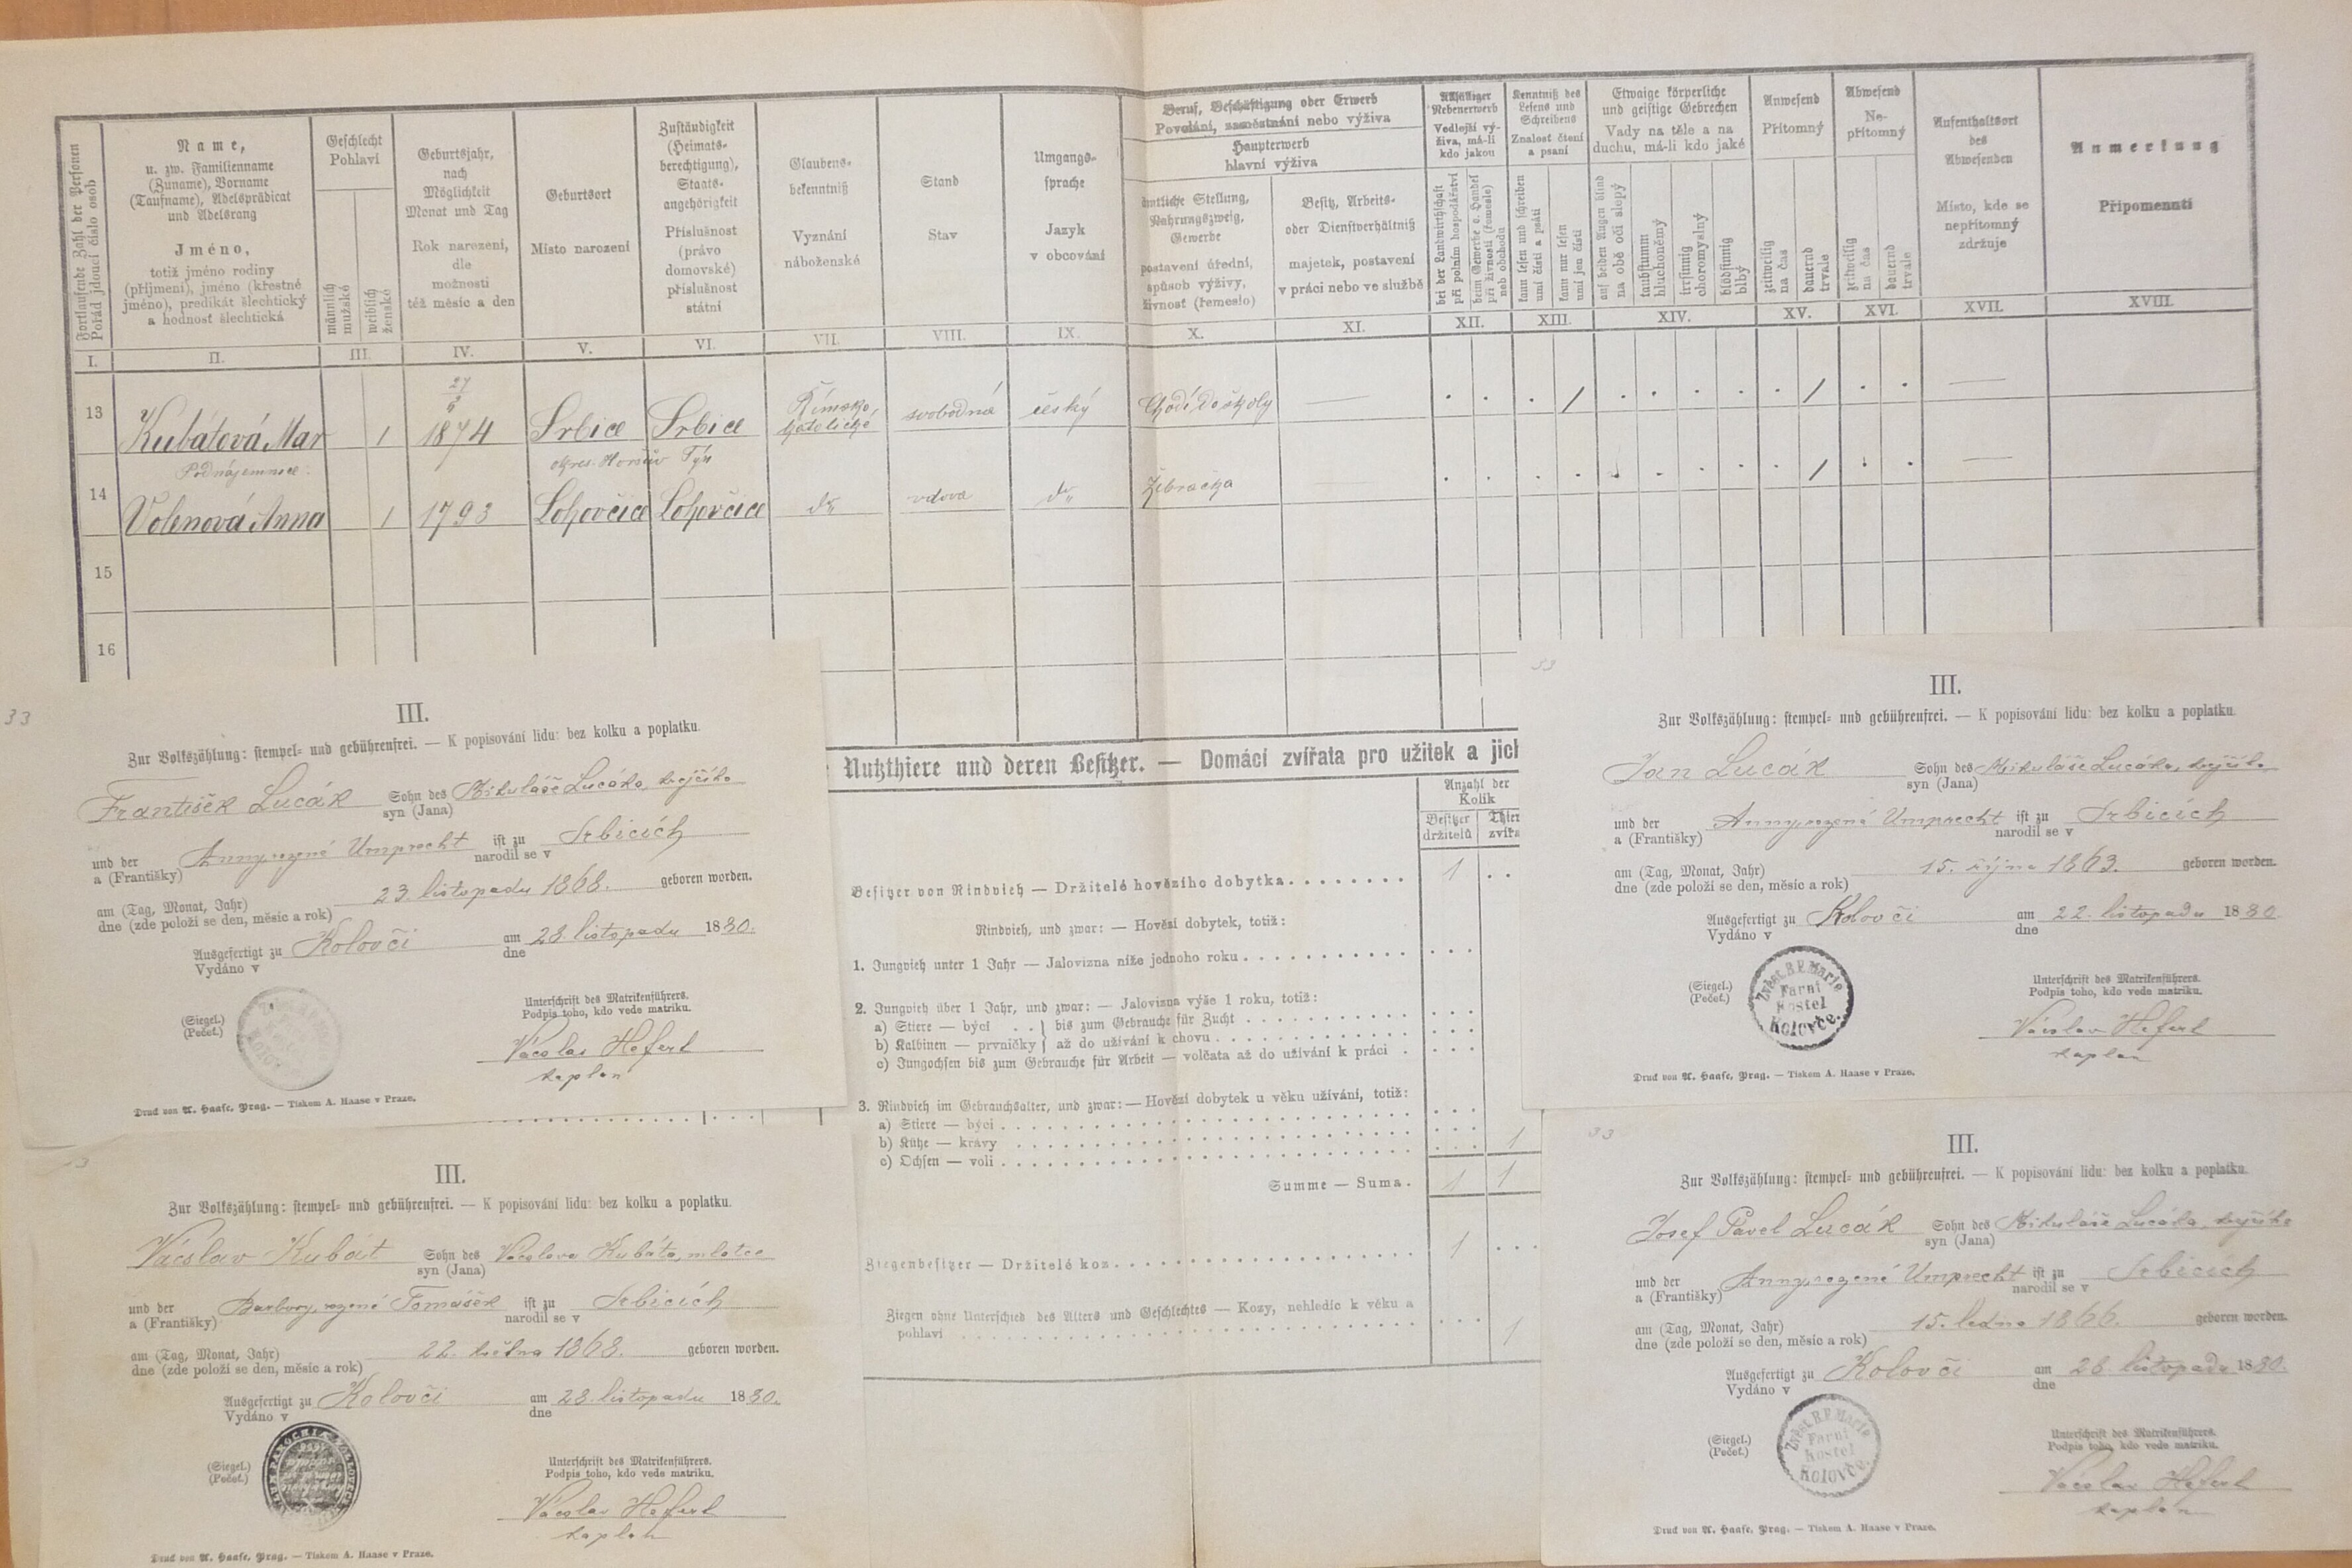 Fortlaufende Zahl der Personen
Pořád jdoucí číslo osob
Name,
u. zw. Familienname
(Zuname), Vorname
(Taufname), Adelsprädicat
und Adelsrang
Jméno,
totiž jméno rodiny
(příjmení), jméno (křestné
jméno), predikát šlechtický
a hodnost šlechtická
Geschlecht
Pohlaví
männlich
mužské
weiblich
ženské
Geburtsjahr,
nach
Möglichkeit
Monat und Tag
Rok narození,
dle
možnosti
též měsíc a den
Geburtsort
Místo narození
Zuständigkeit
(Heimats-
berechtigung),
Staats-
angehörigkeit
Příslušnost
(právo
domovské)
příslušnost
státní
Glaubens-
bekenntniß
Vyznání
náboženské
Stand
Stav
Umgangs-
sprache
Jazyk
v obcování
Beruf, Beschäftigung oder Erwerb
Povolání, zaměstnání nebo výživa
Haupterwerb
hlavní výživa
ämtliche Stellung,
Nahrungszweig,
Gewerbe
postavení úřední,
způsob výživy,
živnost (řemeslo)
Besitz, Arbeits-
oder Dienstverhältniß
majetek, postavení
v práci nebo ve službě
Allfälliger
Nebenerwerb
Vedlejší vý-
živa, má-li
kdo jakou
bei der Landwirthschaft
při polním hospodářství
beim Gewerbe o. Handel
při živnosti (řemesle)
neb obchodu
Kenntniß des
Lesens und
Schreibens
Znalost čtení
a psaní
kann lesen und schreiben
umí čísti a psáti
kann nur lesen
umí jen čísti
Etwaige körperliche
und geistige Gebrechen
Vady na těle a na
duchu, má-li kdo jaké
auf beiden Augen blind
na obě oči slepý
taubstumm
hluchoněmý
irrsinnig
choromyslný
blödsinnig
blbý
Anwesend
Přítomný
zeitweilig
na čas
dauernd
trvale
Abwesend
Ne-
přítomný
zeitweilig
na čas
dauernd
trvale
Aufenthaltsort
des
Abwesenden
Místo, kde se
nepřítomný
zdržuje
Anmerkung
Připomenutí
I. II. III. IV. V. VI. VII. VIII. IX. X. XI. XII. XIII. XIV. XV. XVI. XVII. XVIII.
13 Kubátová Mar 1 1874 Srbice Srbice Římsko katolické svobodná český Chodí do školy
Podnájemnice: okres Horšův Týn
14 Volenová Anna 1 1793 Lohovčice Lohovčice dto vdova dto Žebračka
15
16
Nutzthiere und deren Besitzer. — Domácí zvířata pro užitek a jich
Anzahl der
Kolik
Besitzer
držitelů
Thiere
Besitzer von Rindvieh — Držitelé hovězího dobytka 1
Rindvieh, und zwar: — Hovězí dobytek, totiž:
1. Jungvieh unter 1 Jahr — Jalovizna níže jednoho roku
2. Jungvieh über 1 Jahr, und zwar: — Jalovizna výše 1 roku, totiž:
a) Stiere — býci . . } bis zum Gebrauche für Zucht
b) Kalbinen — prvničky } až do užívání k chovu
c) Jungochsen bis zum Gebrauche für Arbeit — volčata až do užívání k práci
3. Rindvieh im Gebrauchsalter, und zwar: — Hovězí dobytek u věku užívání, totiž:
a) Stiere — býci
b) Kühe — krávy 1
c) Ochsen — voli
Summe — Suma. 1 1
Ziegenbesitzer — Držitelé koz 1
Ziegen ohne Unterschied des Alters und Geschlechtes — Kozy, nehledíc k věku a
pohlaví 1
33
III.
Zur Volkszählung: stempel- und gebührenfrei. — K popisování lidu: bez kolku a poplatku.
František Lucák Sohn des Mikuláše Lucáka, krejčího
syn (Jana)
und der Anny, rozené Umprecht ist zu Srbicích
a (Františky) narodil se v
am (Tag, Monat, Jahr) 23. listopadu 1868. geboren worden.
dne (zde položí se den, měsíc a rok)
Ausgefertigt zu Kolovči am 28. listopadu 1880.
Vydáno v dne
(Siegel.)
(Pečeť.)
Unterschrift des Matrikenführers.
Podpis toho, kdo vede matriku.
Václav Hefert
kaplan
Druck von A. Haase, Prag. — Tiskem A. Haase v Praze.
53
III.
Zur Volkszählung: stempel- und gebührenfrei. — K popisování lidu: bez kolku a poplatku.
Jan Lucák Sohn des Mikuláše Lucáka, krejčího
syn (Jana)
und der Anny, rozené Umprecht ist zu Srbicích
a (Františky) narodil se v
am (Tag, Monat, Jahr) 15. října 1863. geboren worden.
dne (zde položí se den, měsíc a rok)
Ausgefertigt zu Kolovči am 22. listopadu 1880.
Vydáno v dne
(Siegel.)
(Pečeť.)
Zvěst. B. P. Marie
Farní
kostel
Kolovče.
Unterschrift des Matrikenführers.
Podpis toho, kdo vede matriku.
Václav Hefert
kaplan
Druck von A. Haase, Prag. — Tiskem A. Haase v Praze.
III.
Zur Volkszählung: stempel- und gebührenfrei. — K popisování lidu: bez kolku a poplatku.
Václav Kubát Sohn des Václava Kubáta, mlatce
syn (Jana)
und der Barbory, rozené Tomášek ist zu Srbicích
a (Františky) narodil se v
am (Tag, Monat, Jahr) 22. května 1868. geboren worden.
dne (zde položí se den, měsíc a rok)
Ausgefertigt zu Kolovči am 28. listopadu 1880.
Vydáno v dne
(Siegel.)
(Pečeť.)
Unterschrift des Matrikenführers.
Podpis toho, kdo vede matriku.
Václav Hefert
kaplan
Druck von A. Haase, Prag. — Tiskem A. Haase v Praze.
33
III.
Zur Volkszählung: stempel- und gebührenfrei. — K popisování lidu: bez kolku a poplatku.
Josef Pavel Lucák Sohn des Mikuláše Lucáka, krejčího
syn (Jana)
und der Anny, rozené Umprecht ist zu Srbicích
a (Františky) narodil se v
am (Tag, Monat, Jahr) 15. ledna 1866. geboren worden.
dne (zde položí se den, měsíc a rok)
Ausgefertigt zu Kolovči am 28. listopadu 1880.
Vydáno v dne
(Siegel.)
(Pečeť.)
Zvěst. B. P. Marie
Farní
kostel
Kolovče.
Unterschrift des Matrikenführers.
Podpis toho, kdo vede matriku.
Václav Hefert
kaplan
Druck von A. Haase, Prag. — Tiskem A. Haase v Praze.